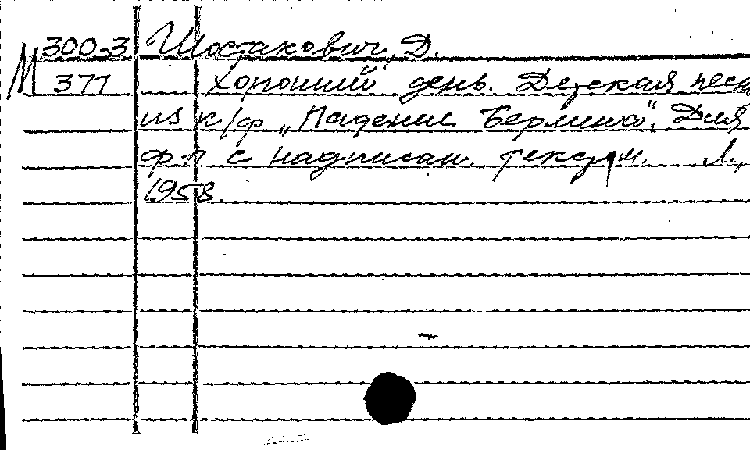 М 300-3 Шостакович, Д.
377 Хороший день. Детская песн
из к/ф „Падение Берлина“. Для
фп с надписан. текстом. Л.,
1958.